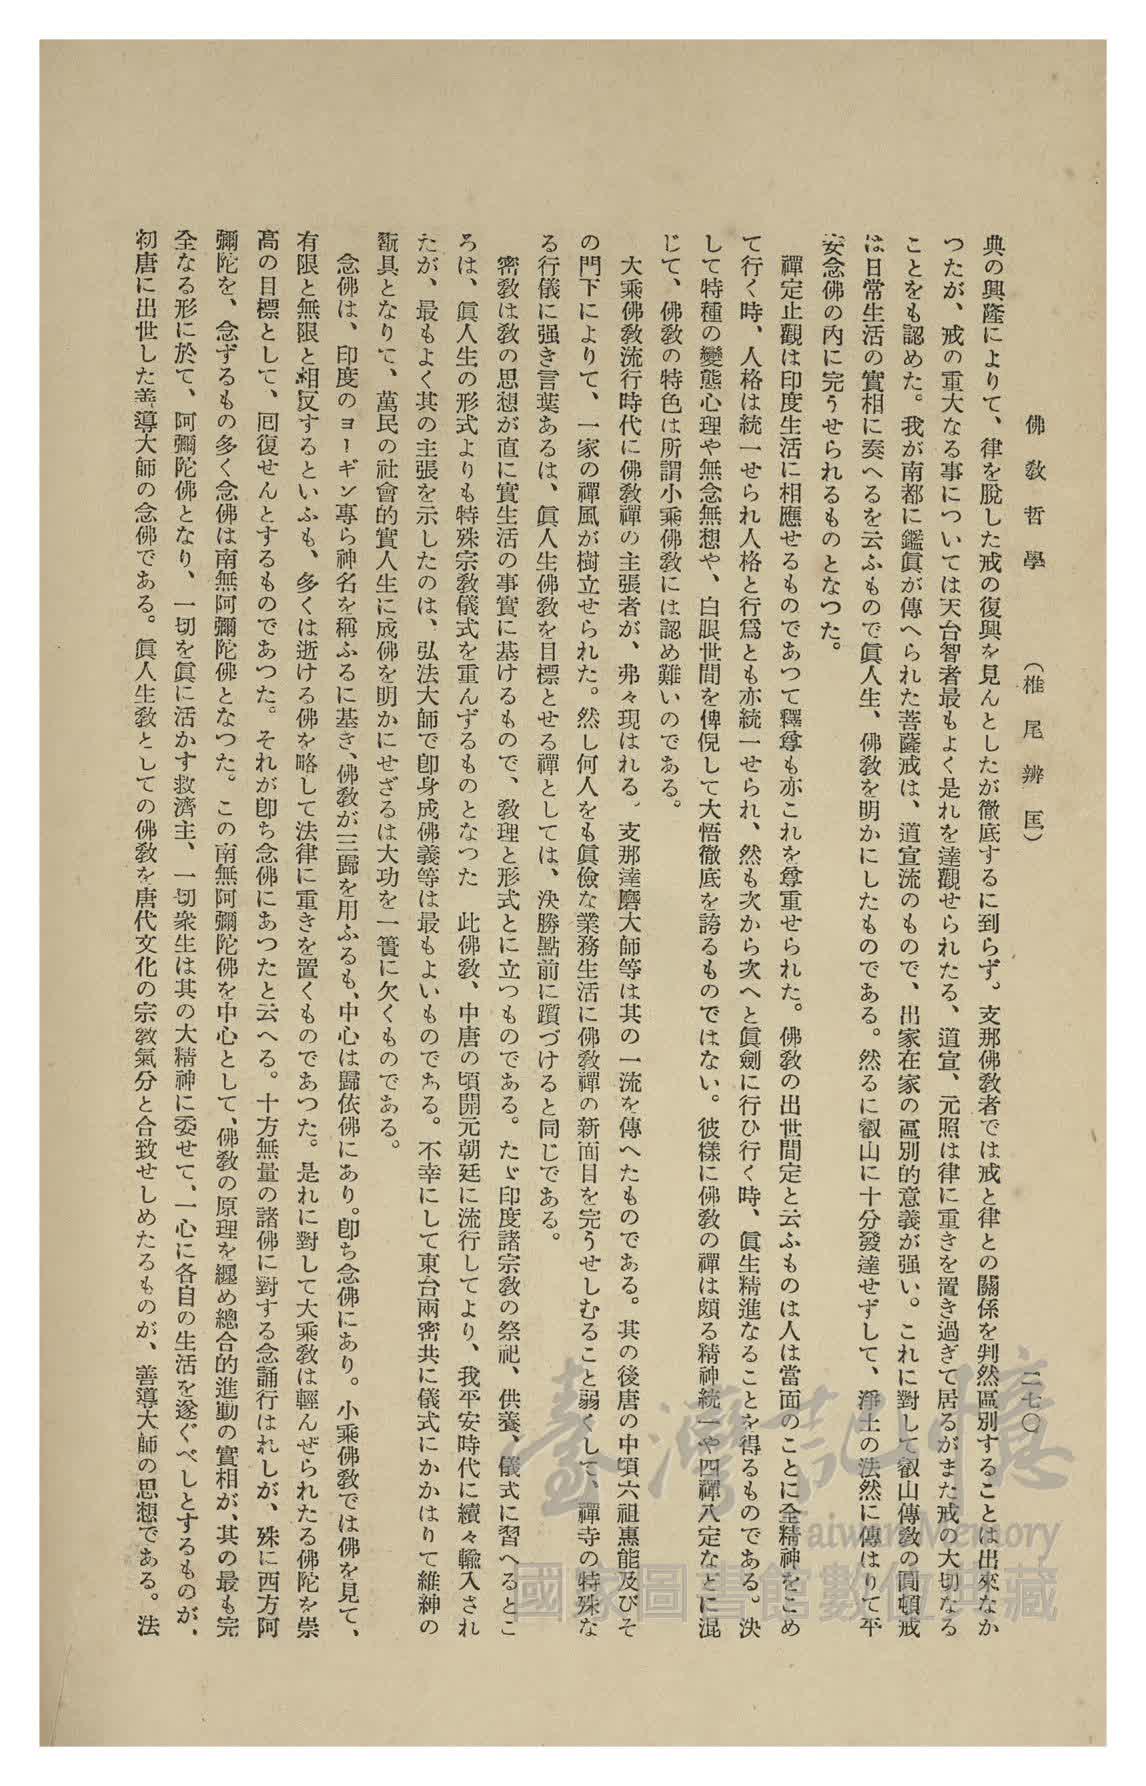 佛教哲學　（椎尾辨匡）　二七〇
典の興隆によりて、律を脫した戒の復興を見んとしたが徹底するに到らず。支那佛教者では戒と律との關係を判然區別することは出來なか
つたが、戒の重大なる事については天台智者最もよく是れを達觀せられたる、道宣、元照は律に重きを置き過ぎて居るがまた戒の大切なる
ことをも認めた。我が南都に鑑眞が傳へられた菩薩戒は、道宣流のもので、出家在家の區別的意義が强い。これに對して叡山傳教の圓頓戒
は日常生活の實相に奏へるを云ふもので眞人生、佛教を明かにしたものである。然るに叡山に十分發達せずして、淨土の法然に傳はりて平
安念佛の內に完うせられるものとなつた。
禪定止觀は印度生活に相應せるものであつて釋尊も亦これを尊重せられた。佛教の出世間定と云ふものは人は當面のことに全精神をこめ
て行く時、人格は統一せられ人格と行爲とも亦統一せられ、然も次から次へと眞劍に行ひ行く時、眞生精進なることを得るものである。決
して特種の變態心理や無念無想や、白眼世間を俾倪して大悟徹底を誇るものではない。彼樣に佛教の禪は頗る精神統一や四禪八定などに混
じて、佛教の特色は所謂小乘佛教には認め難いのである。
大乘佛教流行時代に佛教禪の主張者が、弗々現はれる。支那達磨大師等は其の一流を傳へたものである。其の後唐の中頃六祖惠能及びそ
の門下によりて、一家の禪風が樹立せられた。然し何人をも眞儉な業務生活に佛教禪の新面目を完うせしむること弱くして、禪寺の特殊な
る行儀に强き言葉あるは、眞人生佛教を目標とせる禪としては、決勝點前に躓づけると同じである。
密教は教の思想が直に實生活の事實に基けるもので、教理と形式とに立つものである。たゞ印度諸宗教の祭祀、供養、儀式に習へるとこ
ろは、眞人生の形式よりも特殊宗教儀式を重んずるものとなつた　此佛教、中唐の頃開元朝廷に流行してより、我平安時代に續々輸入され
たが、最もよく其の主張を示したのは、弘法大師で卽身成佛義等は最もよいものである。不幸にして東台兩密共に儀式にかかはりて維神の
翫具となりて、萬民の社會的實人生に成佛を明かにせざるは大功を一簣に欠くものである。
念佛は、印度のヨーギン專ら神名を稱ふるに基き、佛教が三歸を用ふるも、中心は歸依佛にあり。卽ち念佛にあり。小乘佛教では佛を見て、
有限と無限と相反するといふも、多くは逝ける佛を略して法律に重きを置くものであつた。是れに對して大乘教は輕んぜられたる佛陀を崇
高の目標として、囘復せんとするものであつた。それが卽ち念佛にあつたと云へる。十方無量の諸佛に對する念誦行はれしが、殊に西方阿
彌陀を、念ずるもの多く念佛は南無阿彌陀佛となつた。この南無阿彌陀佛を中心として、佛教の原理を纒め總合的進動の實相が、其の最も完
全なる形に於て、阿彌陀佛となり、一切を眞に活かす救濟主、一切衆生は其の大精神に委せて、一心に各自の生活を遂ぐべしとするものが、
初唐に出世した善導大師の念佛である。眞人生教としての佛教を唐代文化の宗教氣分と合致せしめたるものが、善導大師の思想である。法
臺灣記憶
Taiwan Memory
國家圖書館數位典藏